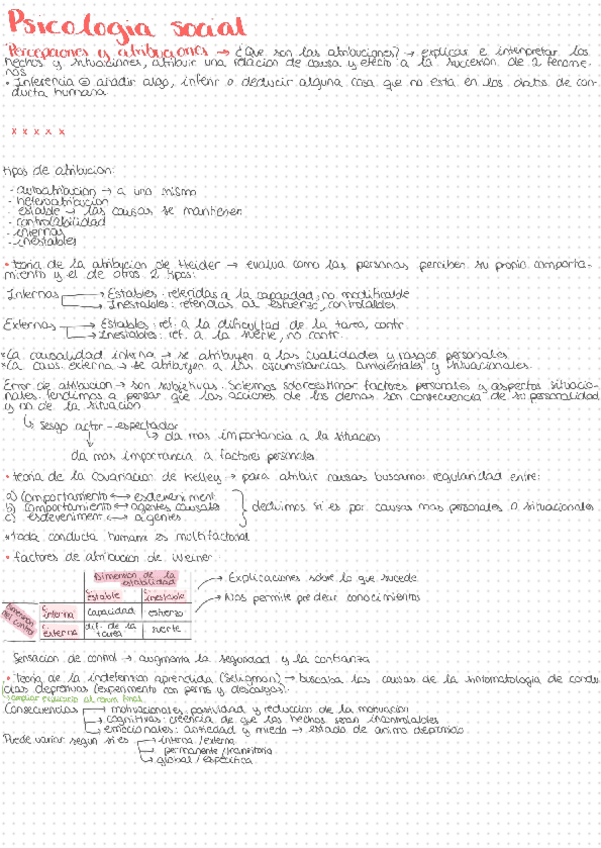 Psicologia social
Percepciones y atribuciones → ¿Que son las atribuciones? → explicar e interpretar los
hechos y situaciones, atribuir una relacion de causa y efecto a la sucesion de 2 fenome-
nos
• Inferencia añadir algo, inferir o deducir alguna cosa que no esta en los datos de con-
ducta humana
x x x x x
tipos de atribucion:
- autoatribucion → a uno mismo
- heteroatribucion
- estable → las causas se mantienen
- controlabilidad
- internas
- inestables
• teoria de la atribucion de Heider → evalua como las personas perciben su propio comporta-
miento y el de otros. 2 tipos:
Internas → Estables: referidas a la capacidad, no modificable
→ Inestables: referidas al esfuerzo, controlables
Externas → Estables: ref. a la dificultad de la tarea, contr.
→ Inestables: ref. a la suerte, no contr.
*La causalidad interna → se atribuyen a las cualidades y rasgos personales
*La caus. externa → se atribuyen a las circunstancias ambientales y situacionales.
Error de atribucion → son subjetivas. Solemos sobreestimar factores personales y aspectos situacio-
nales. Tendimos a pensar que las acciones de los demas son consecuencia de su personalidad
y no de la situacion
↳ sesgo actor-espectador
↳ da mas importancia a la situacion
da mas importancia a factores personales
• teoria de la covariacion de Kelley → para atribuir causas buscamos regularidad entre:
a) comportamiento ↔ esdeveniment
b) comportamiento ↔ agentes causales
c) esdeveniment ↔ agentes
deducimos si es por causas mas personales o situacionales
*toda conducta humana es multifactorial
• factores de atribucion de Weiner
Dimension de la
estabilidad
→ Explicaciones sobre lo que sucede
C. estable C. inestable
→ Nos permite predecir conocimientos
Dimension del control
C. interna capacidad esfuerzo
C. externa dif. de la tarea suerte
Sensacion de control → augmenta la seguridad y la confianza
• Teoria de la indefension aprendida (Seligman) → buscaba las causas de la sintomatologia de condu-
cias depresivas (experimento con perros y descargas).
al final
Consecuencias → motivacionales: pasividad y reduccion de la motivacion
→ cognitivas: creencia de que los hechos seran incontrolables
→ emocionales: ansiedad y miedo → estado de animo deprimido
Puede variar segun si es → interna / externa
→ permanente / transitoria
→ global / especifica